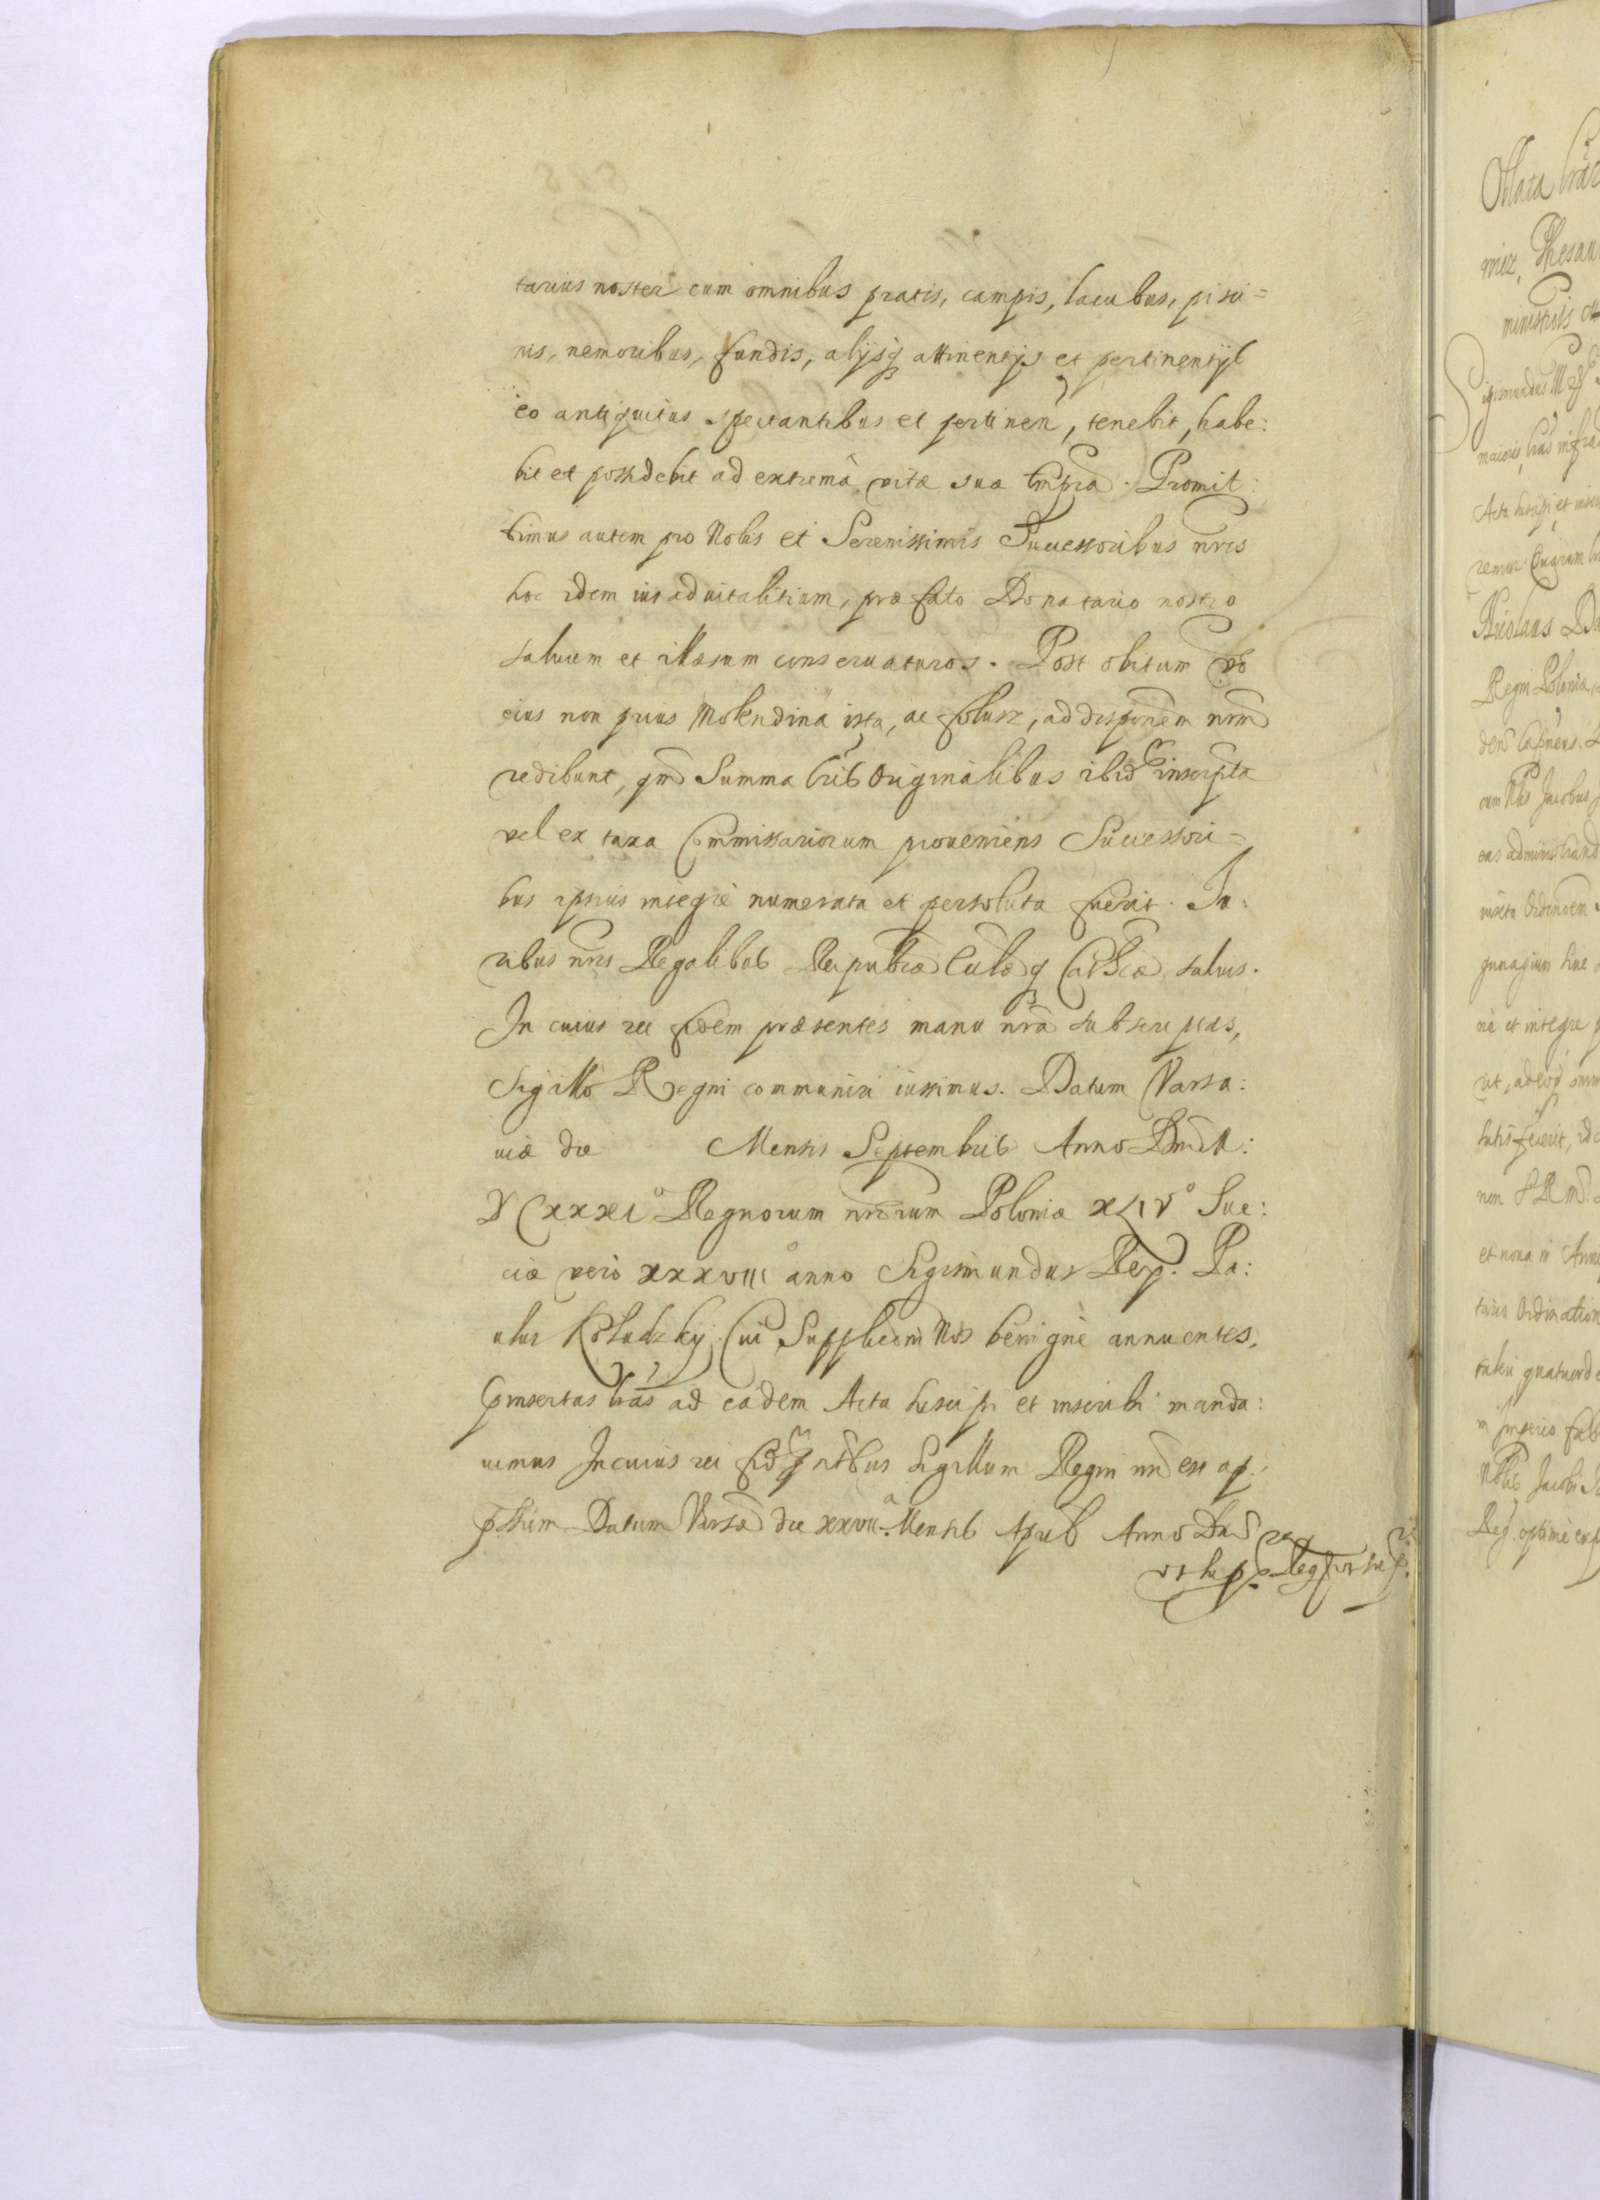 tarius noster cum omnibus pratis, campis, lacubus, pisci=
nis, nemoribus, fundis, alijsq attinentijs et pertinentijs
eo antiquitus spectantibus et pertinen, tenebit, habe:
bit et possidebit ad extrema vitæ suæ tmpra. Promit:
timus autem pro Nobis et Serenissimis Successoribus nris
hoc idem ius aduitalitium, præfato Donatario nostro
saluum et illæsum conseruaturos. Post obitum vo
eius non prius Molendina ista, ac folusz, ad disponem nrm
redibunt, qm Summa lris Originalibus ibid inscripta
vel ex taxa Commissariorum proueniens Successori=
bus ipsius integre numerata et persoluta fuerit. Iu:
ribus nris Regalibus Reipubcæ Cclæq Cathcæ saluis.
In cuius rei fidem præsentes manu nra subscriptas,
Sigillo Regni communiri iussimus. Datum Varsa:
uiæ die Mensis Septembris Anno Dni M:
D CXXXI° Regnorum nrorum Poloniæ XLIV° Sue:
ciæ vero XXXVIII° anno Sigismundus Rex. Pa:
ulus Kołudzkij. Cui Supplicõni Nos benigne annuentes,
Prinsertas lras ad eadem Acta suscipi et inscribi manda:
uimus In cuius rei fid prntibus Sigillum Regni nr est ap:
pssum Datum Varsæ die XXVII. Mensis Apris Anno Dni
vt sup. Reg vt sup.
Oblata
Thesau
Sigismundus
Acta suscipi et
Nicolaus
Regni Poloniæ
Jacobus
iuxta Ordinõem
et integre
et noua in